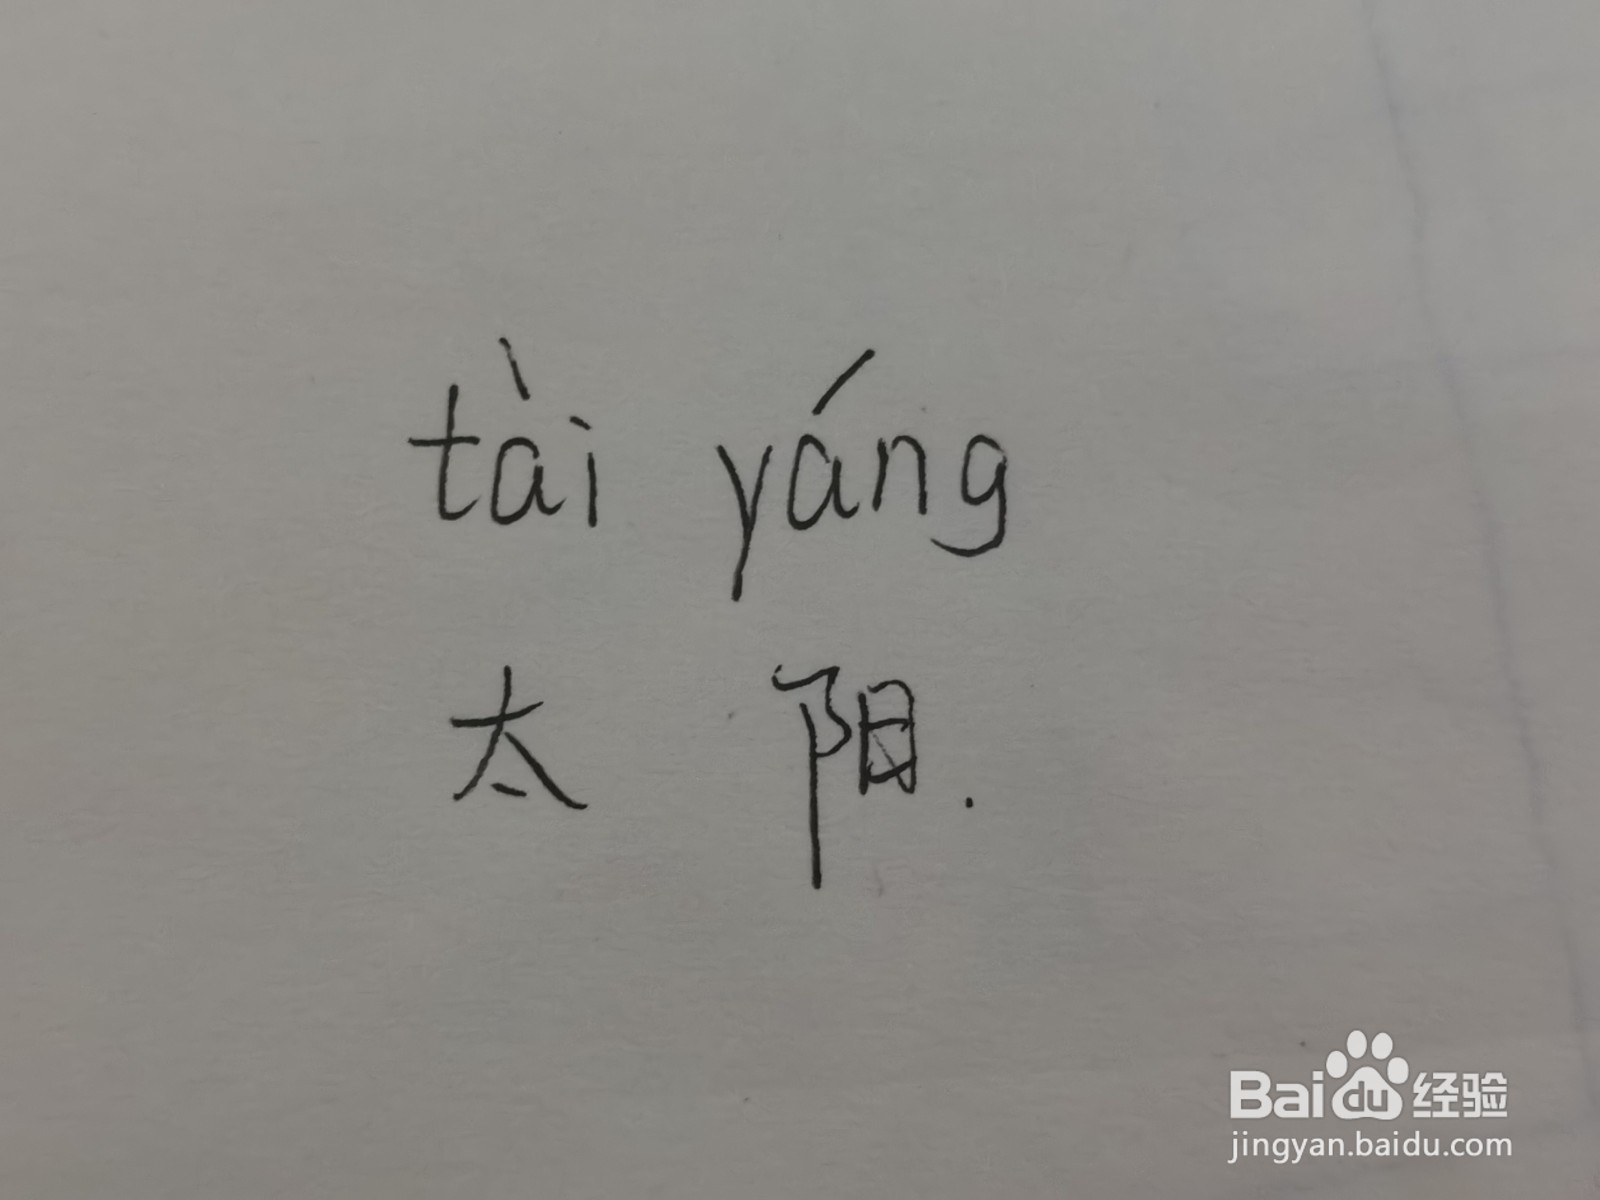 tài yáng
太 阳.
Baidu 经验
jingyan.baidu.com